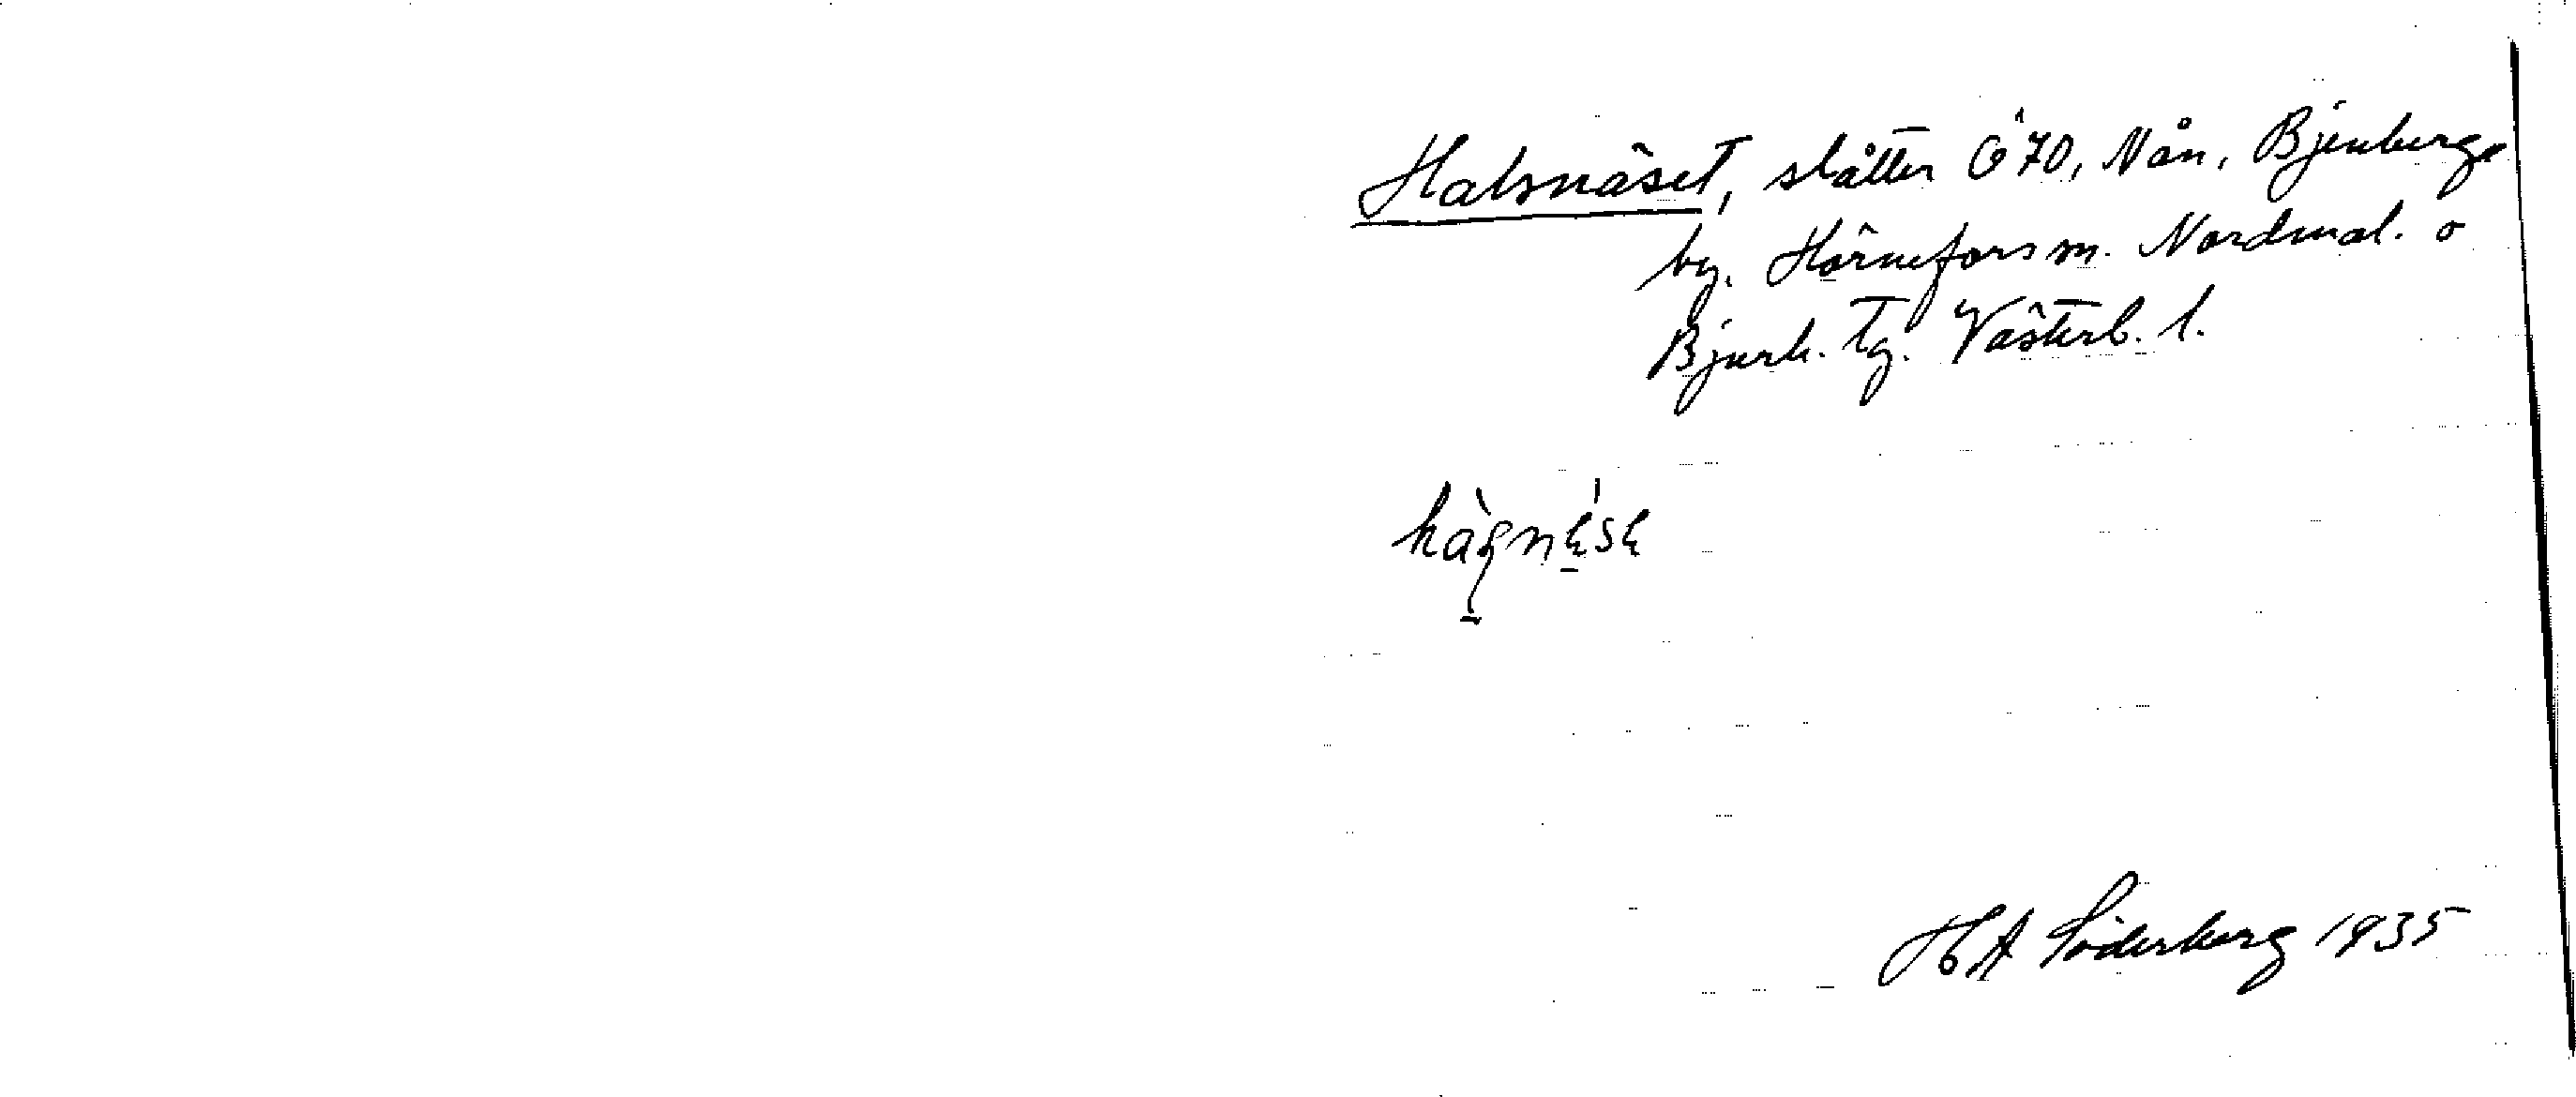 Halsnäset, slåtter Ö 70, Nån, Bjenberge
by. Hörnefors sn. Nordmal. o
Bjurh. Tg. Västerb. l.
H A Söderberg 1935